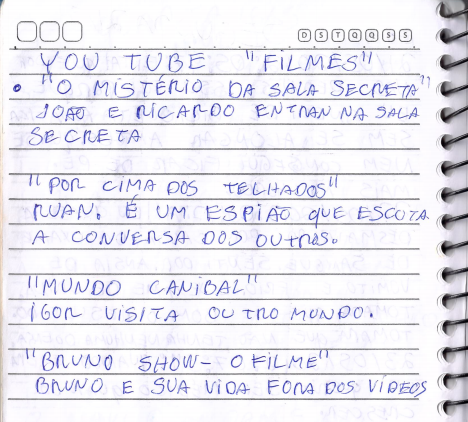 D S T Q Q S S
YOU TUBE "FILMES"
• "O MISTÉRIO DA SALA SECRETA"
JOÃO E RICARDO ENTRAN NA SALA
SECRETA
"POR CIMA DOS TELHADOS"
RUAN. É UM ESPIÃO QUE ESCOTA
A CONVERSA DOS OUTROS.
"MUNDO CANIBAL"
IGOR VISITA OUTRO MUNDO.
"BRUNO SHOW- O FILME"
BRUNO E SUA VIDA FORA DOS VÍDEOS